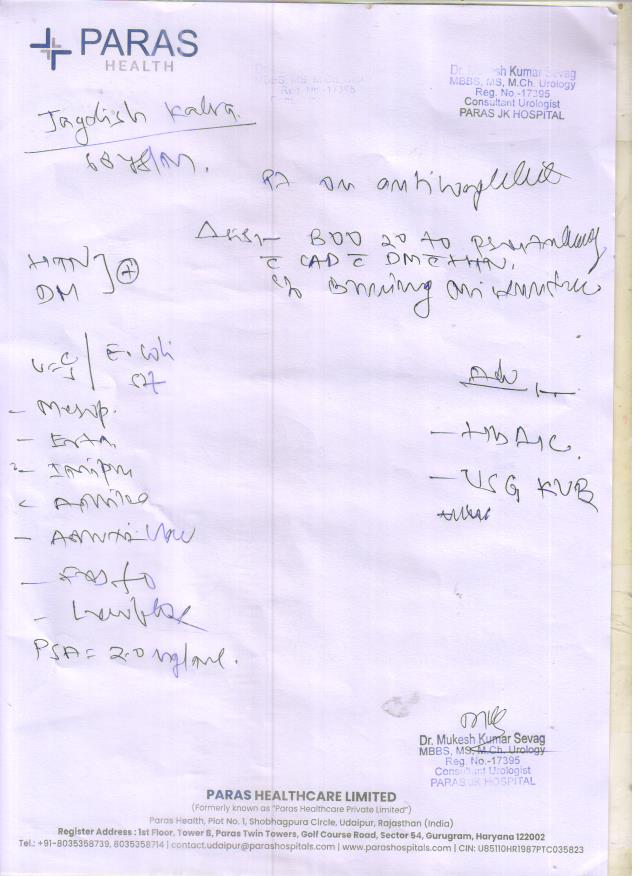 PARAS
HEALTH
Dr. Mukesh Kumar Sevag
MBBS, MS, M.Ch. Urology
Reg. No.-17395
Consultant Urologist
PARAS JK HOSPITAL
MBBS, MS, M.Ch.
Reg. No.-17395
Jagdish Kalra.
68 yr/M.
on
BOO 20 to
c̄ CAD c̄ DM c̄ HTN.
HTN
DM
+
Burning
U-C/S
E. coli
Adv
- Merop.
- Erta
- HbA1C.
- Imipn
- USG KUB
- Amika
- Fosfo
PSA = 2.0 ng/ml.
Dr. Mukesh Kumar Sevag
MBBS, MS, M.Ch. Urology
Reg. No.-17395
Consultant Urologist
PARAS JK HOSPITAL
PARAS HEALTHCARE LIMITED
(Formerly known as "Paras Healthcare Private Limited")
Paras Health, Plot No. 1, Shobhagpura Circle, Udaipur, Rajasthan (India)
Register Address : 1st Floor, Tower B, Paras Twin Towers, Golf Course Road, Sector 54, Gurugram, Haryana 122002
Tel.: +91-8035358739, 8035358714 | contact.udaipur@parashospitals.com | www.parashospitals.com | CIN: U85110HR1987PTC035823